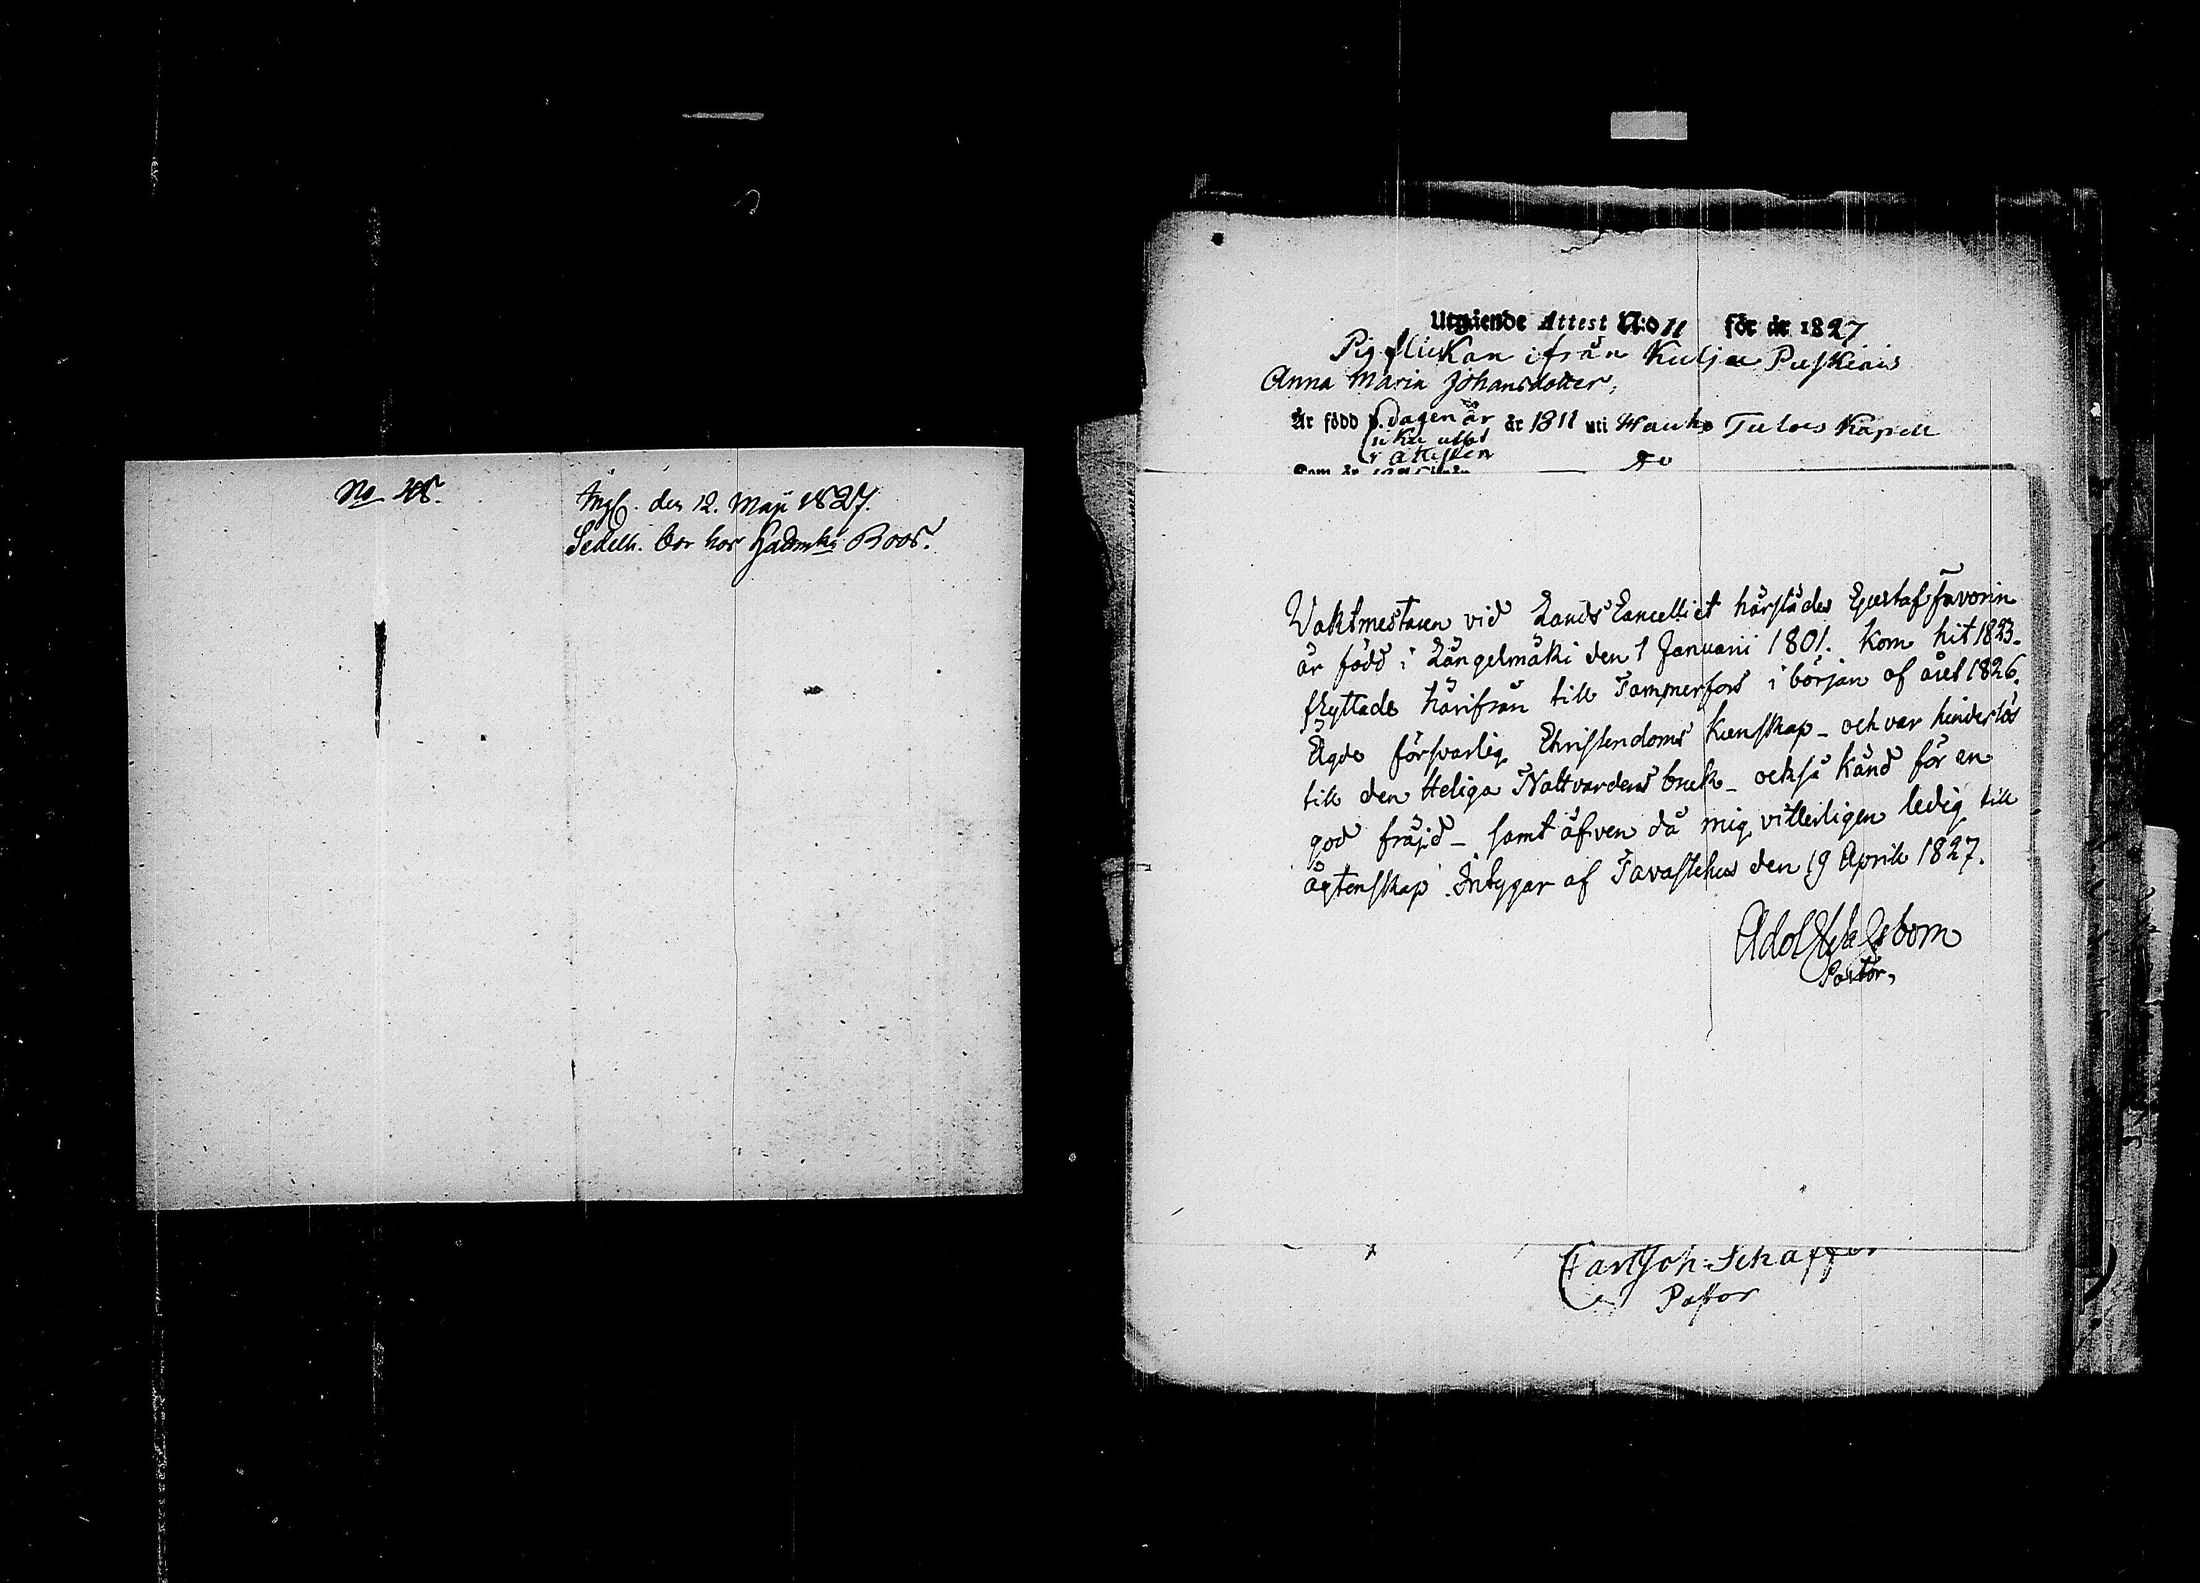 No 48.
Ingf. den 12. Maji 1827.
Sedelb. bor hos Roos.
Utgående Attest N:o 11 för år 1827
Pigflickan ifrån Kulju Puskinis
Anna Maria Johansdotter,
Är född dagen är år 1811 uti Hauho Tulois Kapell
icke utsat
i attesten
Vaktmestaren vid Lands Cancelliet härstädes Gustaf Favorin
är född i Längelmäki den 1 Januarii 1801. kom hit 1823.
flyttade härifrån till Tammerfors i början af året 1826.
Ägde försvarlig Christendoms kunskap - och var hinderlös
till den Heliga Nattvardens bruk - också känd för en
god fräjd - samt äfven då mig vitterligen ledig till
ägtenskap. Intygar af Tavastehus den 19 April 1827.
Pastor,
Carl Joh. Schaffer
Pastor